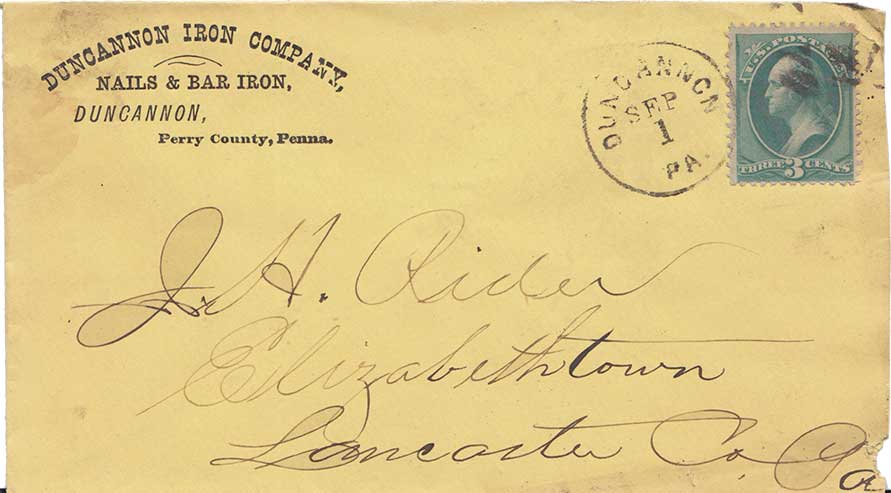 DUNCANNON IRON COMPANY,
NAILS & BAR IRON,
DUNCANNON,
Perry County, Penna.
DUNCANNON
SEP
1
PA.
U.S. POSTAGE
THREE 3 CENTS
J. H. Rider
Elizabethtown
Lancaster Co. Pa